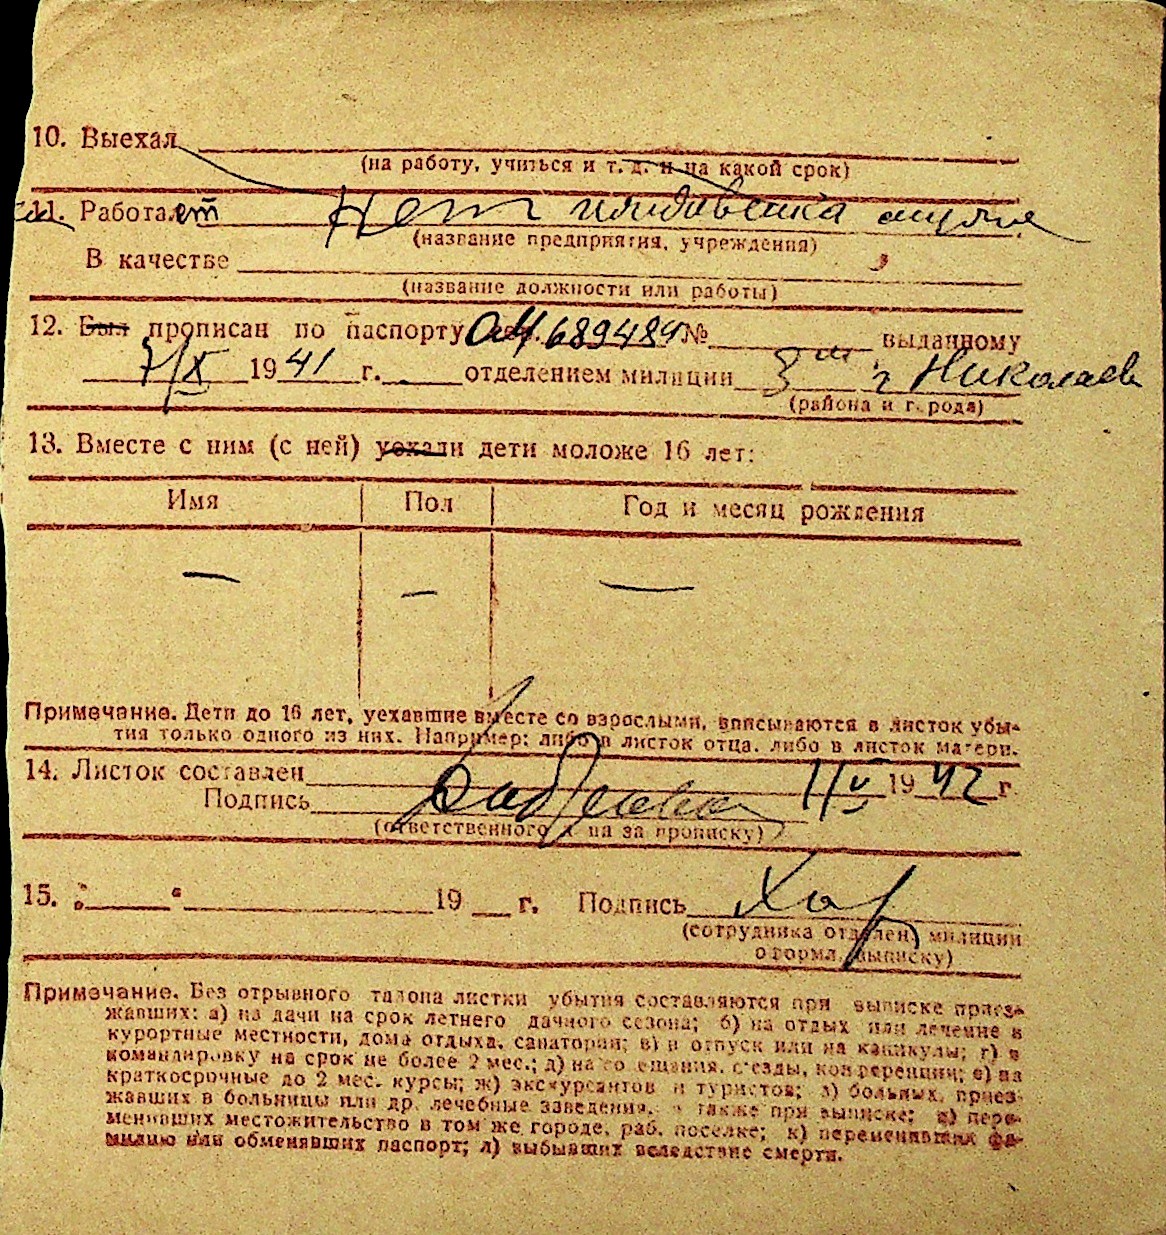 10. Выехал
(на работу, учиться и т. д. и на какой срок)
11. Работает Нет иждивенка мужа
(название предприятия, учреждения)
В качестве
(название должности или работы)
12. Был прописан по паспорту 689489 № выданному
7/IX 1941 г. отделением милиции 3 г Николаев
(района и города)
13. Вместе с ним (с ней) уехали дети моложе 16 лет:
Имя Пол Год и месяц рождения
— — —
Примечание. Дети до 16 лет, уехавшие вместе со взрослыми, вписываются в листок убы-
тия только одного из них. Например: либо в листок отца, либо в листок матери.
14. Листок составлен 1942 г.
Подпись
(ответственного л на за прописку)
15. " " 19 г. Подпись Хар
(сотрудника отделен. милиции
оформл. выписку)
Примечание. Без отрывного талона листки убытия составляются при выписке приез-
жавших: а) на дачи на срок летнего дачного сезона; б) на отдых или лечение в
курортные местности, дома отдыха, санатории; в) в отпуск или на каникулы; г) в
командировку на срок не более 2 мес.; д) на совещания, съезды, конференции; е) на
краткосрочные до 2 мес. курсы; ж) экскурсантов и туристов; з) больных, приез-
жавших в больницы или др. лечебные заведения, а также при выписке; и) пере-
менивших местожительство в том же городе, раб. поселке; к) переменивших фа-
милию или обменявших паспорт; л) выбывших вследствие смерти.